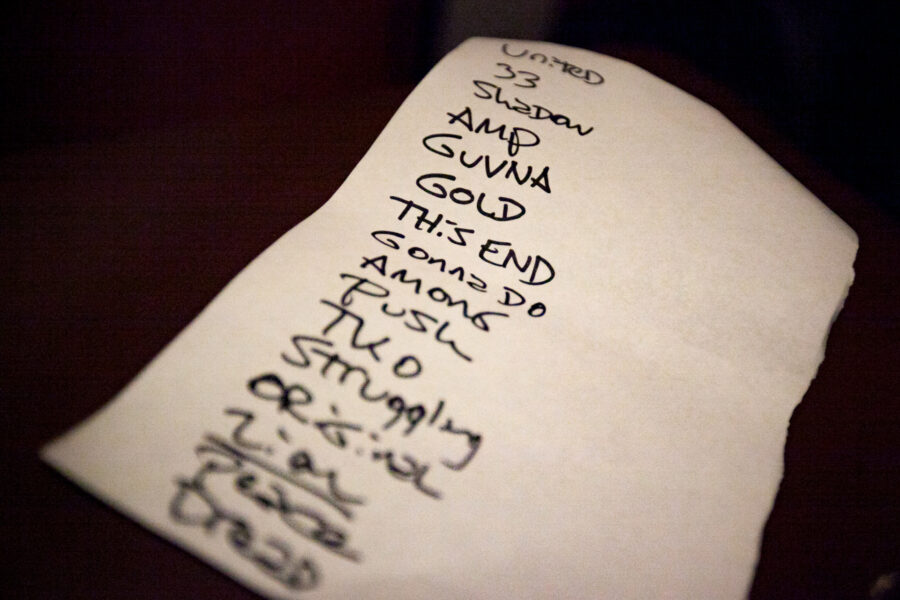 UNITED
33
SHADOW
AMP
GUVNA
GOLD
THIS END
GONNA DO
AMONG
PUSH
TKO
STRUGGLING
ORIGINAL
Zion
PEACE
DREAD